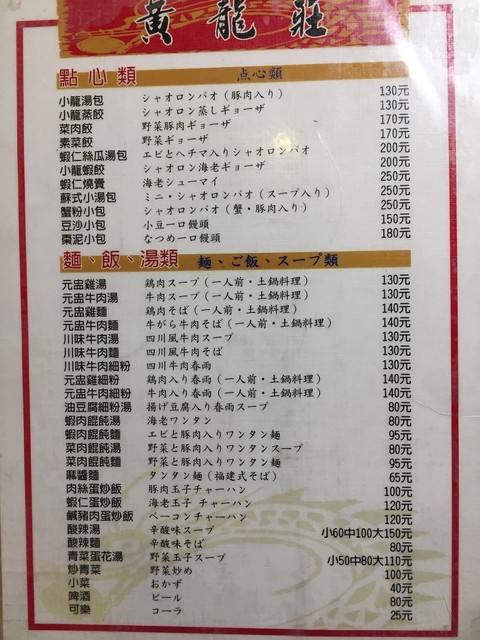 黃龍莊
點心類 点心類
小龍湯包 シャオロンパオ（豚肉入り） 130元
小龍蒸餃 シャオロン蒸しギョーザ 130元
菜肉餃 野菜豚肉ギョーザ 170元
素菜餃 野菜ギョーザ 170元
蝦仁絲瓜湯包 エビとヘチマ入りシャオロンパオ 200元
小龍蝦餃 シャオロン海老ギョーザ 200元
蝦仁燒賣 海老シューマイ 250元
蘇式小湯包 ミニ・シャオロンパオ（スープ入り） 250元
蟹粉小包 シャオロンパオ（蟹・豚肉入り） 250元
豆沙小包 小豆一口饅頭 150元
棗泥小包 なつめ一口饅頭 180元
麵、飯、湯類 麺、ご飯、スープ類
元盅雞湯 鶏肉スープ（一人前・土鍋料理） 130元
元盅牛肉湯 牛肉スープ（一人前・土鍋料理） 130元
元盅雞麵 鶏肉そば（一人前・土鍋料理） 140元
元盅牛肉麵 牛がら牛肉そば（一人前・土鍋料理） 140元
川味牛肉湯 四川風牛肉スープ 130元
川味牛肉麵 四川風牛肉そば 130元
川味牛肉細粉 四川牛肉春雨 130元
元盅雞細粉 鶏肉入り春雨（一人前・土鍋料理） 140元
元盅牛肉細粉 牛肉入り春雨（一人前・土鍋料理） 140元
油豆腐細粉湯 揚げ豆腐入り春雨スープ 80元
蝦肉餛飩湯 海老ワンタン 80元
蝦肉餛飩麵 エビと豚肉入りワンタン麺 95元
菜肉餛飩湯 野菜と豚肉入りワンタンスープ 80元
菜肉餛飩麵 野菜と豚肉入りワンタン麺 95元
麻醬麵 タンタン麺（福建式そば） 65元
肉絲蛋炒飯 豚肉玉子チャーハン 100元
蝦仁蛋炒飯 海老玉子 チャーハン 120元
鹹豬肉蛋炒飯 ベーコンチャーハン 120元
酸辣湯 辛酸味スープ 小60中100大150元
酸辣麵 辛酸味そば 80元
青菜蛋花湯 野菜玉子スープ 小50中80大110元
炒青菜 野菜炒め 100元
小菜 おかず 40元
啤酒 ビール 80元
可樂 コーラ 25元